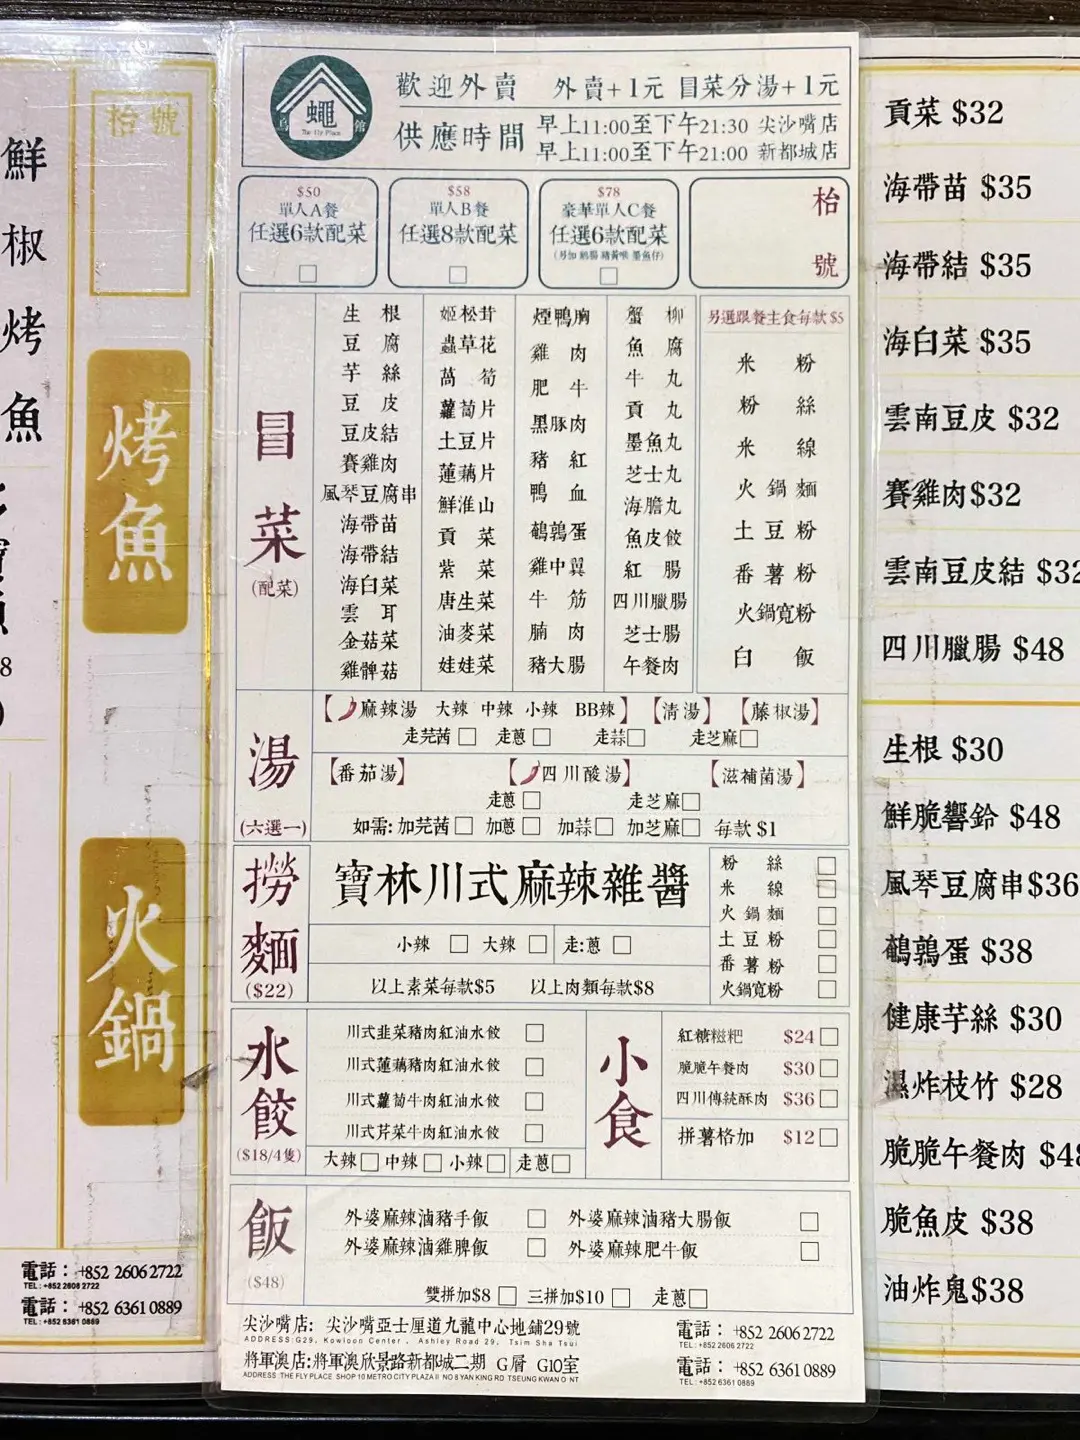 鮮
椒
烤
魚
8
枱號
烤魚
火鍋
電話：+852 2606 2722
TEL：+852 2606 2722
電話：+852 6361 0889
TEL：+852 6361 0889
烏 蠅 館
The Fly Place
歡迎外賣 外賣+1元 冒菜分湯+1元
供應時間 早上11:00至下午21:30 尖沙嘴店
早上11:00至下午21:00 新都城店
$50
單人A餐
任選6款配菜
$58
單人B餐
任選8款配菜
$78
豪華單人C餐
任選6款配菜
(另加 鵝腸 豬黃喉 墨魚仔)
枱
號
冒菜
(配菜)
生根
豆腐
芋絲
豆皮
豆皮結
賽雞肉
風琴豆腐串
海帶苗
海帶結
海白菜
雲耳
金菇菜
雞髀菇
姬松茸
蟲草花
萵筍
蘿蔔片
土豆片
蓮藕片
鮮淮山
貢菜
紫菜
唐生菜
油麥菜
娃娃菜
煙鴨胸
雞肉
肥牛
黑豚肉
豬紅
鴨血
鵪鶉蛋
雞中翼
牛筋
腩肉
豬大腸
蟹柳
魚腐
牛丸
貢丸
墨魚丸
芝士丸
海膽丸
魚皮餃
紅腸
四川臘腸
芝士腸
午餐肉
另選跟餐主食每款$5
米粉
粉絲
米線
火鍋麵
土豆粉
番薯粉
火鍋寬粉
白飯
湯
(六選一)
【麻辣湯 大辣 中辣 小辣 BB辣】【清湯】【藤椒湯】
走芫茜□ 走蔥□ 走蒜□ 走芝麻□
【番茄湯】 【四川酸湯】 【滋補菌湯】
走蔥□ 走芝麻□
如需:加芫茜□ 加蔥□ 加蒜□ 加芝麻□ 每款$1
撈麵
($22)
寶林川式麻辣雜醬
小辣 □ 大辣 □ 走:蔥 □
以上素菜每款$5 以上肉類每款$8
粉絲 □
米線 □
火鍋麵 □
土豆粉 □
番薯粉 □
火鍋寬粉 □
水餃
($18/4隻)
川式韭菜豬肉紅油水餃 □
川式蓮藕豬肉紅油水餃 □
川式蘿蔔牛肉紅油水餃 □
川式芹菜牛肉紅油水餃 □
大辣□ 中辣□ 小辣□ 走蔥□
小食
紅糖糍粑 $24□
脆脆午餐肉 $30□
四川傳統酥肉 $36□
拼薯格加 $12□
飯
($48)
外婆麻辣滷豬手飯 □ 外婆麻辣滷豬大腸飯 □
外婆麻辣滷雞脾飯 □ 外婆麻辣肥牛飯 □
雙拼加$8 □ 三拼加$10 □ 走蔥□
尖沙嘴店: 尖沙嘴亞士厘道九龍中心地鋪29號
ADDRESS:G29, Kowloon Center, Ashley Road 29, Tsim Sha Tsui
將軍澳店:將軍澳欣景路新都城二期 G層 G10室
ADDRESS THE FLY PLACE SHOP 10 METRO CITY PLAZA II NO 8 YAN KING RD TSEUNG KWAN O NT
電話：+852 2606 2722
TEL：+852 2606 2722
電話：+852 6361 0889
TEL：+852 6361 0889
貢菜 $32
海帶苗 $35
海帶結 $35
海白菜 $35
雲南豆皮 $32
賽雞肉$32
雲南豆皮結 $32
四川臘腸 $48
生根 $30
鮮脆響鈴 $48
風琴豆腐串$36
鵪鶉蛋 $38
健康芋絲 $30
濕炸枝竹 $28
脆脆午餐肉 $48
脆魚皮 $38
油炸鬼$38